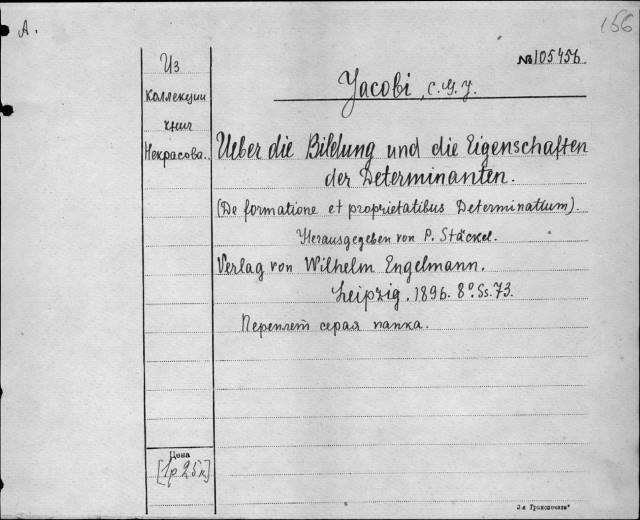 A.
156
№105456
Jacobi, C.G.J.
Из
Коллекции
книг
Некрасова.
Ueber die Bildung und die Eigenschaften
der Determinanten.
(De formatione et proprietatibus Determinatium).
Herausgegeben von P. Stäckel.
Verlag von Wilhelm Engelmann.
Leipzig. 1896. 8º. Ss. 73.
Переплет серая папка.
Цена
[1р 25к]